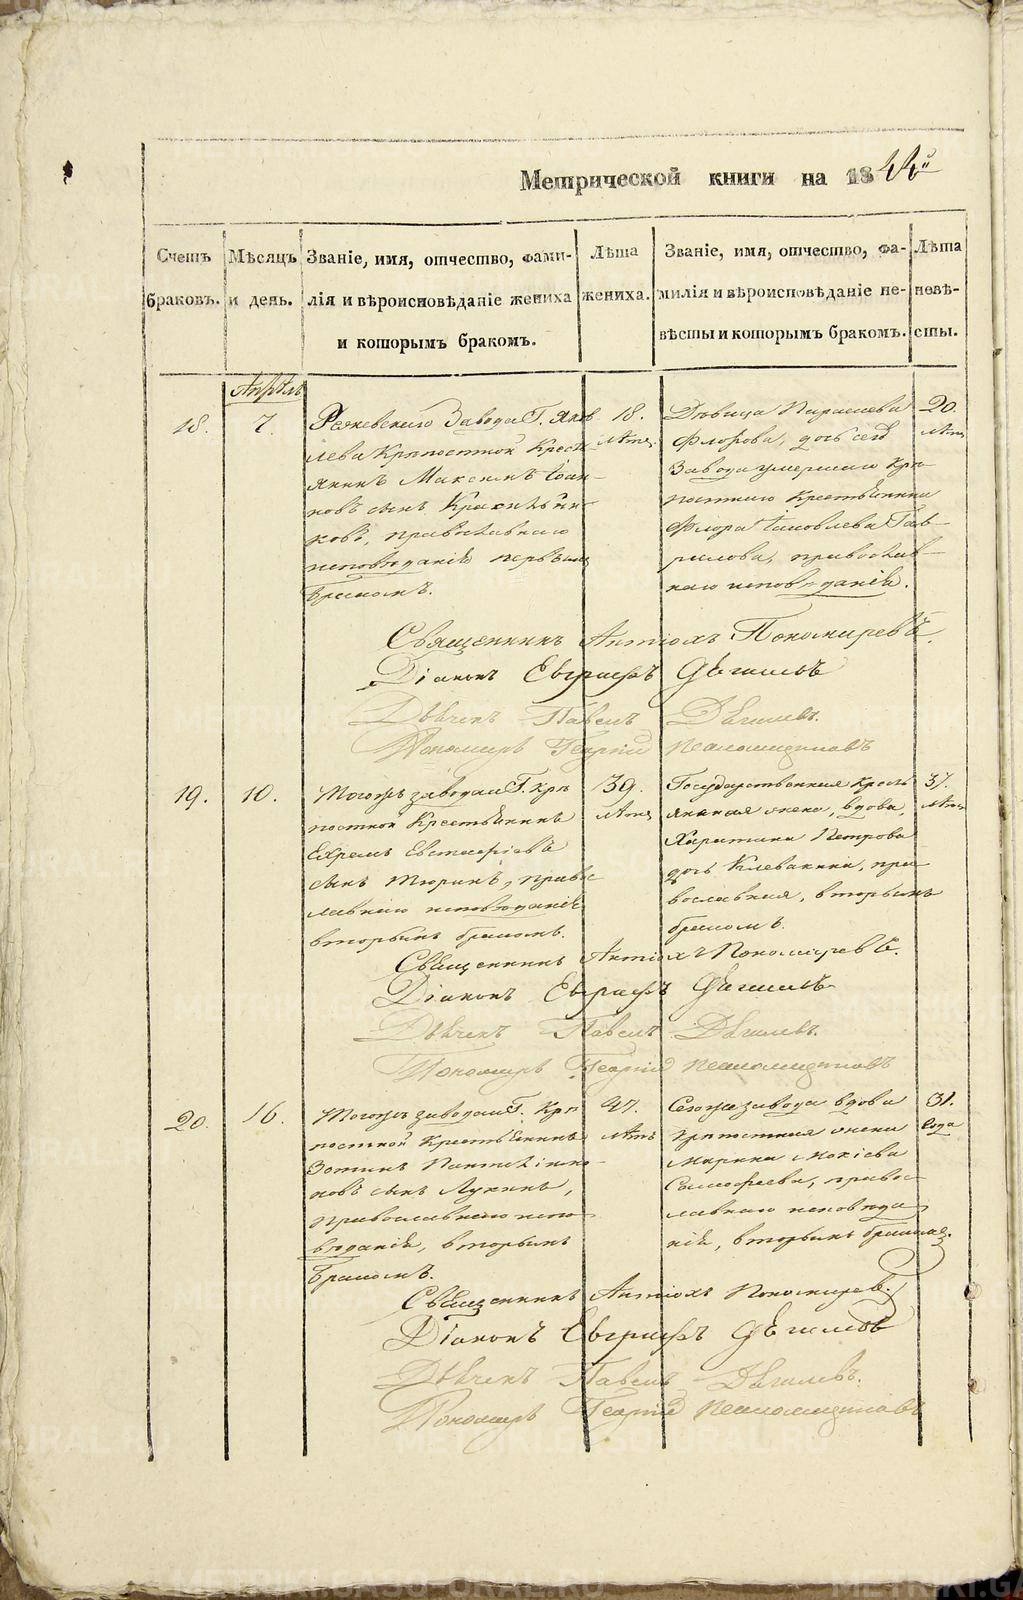 Метрической книги на 18
Счетъ
браковъ.
Мѣсяцъ
и день.
Званіе, имя, отчество, фами-
лія и вѣроисповѣданіе жениха
и которымъ бракомъ.
Лѣта
жениха.
Званіе, имя, отчество, фа-
милія и вѣроисповѣданіе не-
вѣсты и которымъ бракомъ.
Лѣта
невѣ-
сты.
Апрѣль
18.
7.
Режевскаго Завода Г. Яков
лева Крѣпостной Кресть
янинъ Максимъ Іоан-
новъ сынъ
православнаго
исповѣданія первымъ
бракомъ.
18.
лѣтъ.
Дѣвица Параскева
Флорова, дочь сего
Завода умершаго Крѣ
постнаго Крестьянина
Флора Іаковлева Гав-
рилова, православ-
наго исповѣданія.
20.
лѣтъ
Священникъ Антіохъ Пономаревъ.
Діаконъ Евграфъ Дягилевъ
Дьячекъ Павелъ Дягилевъ.
Пономарь Георгій
19.
10.
Тогожъ завода Г. Крѣ
постной Крестьянинъ
Ефремъ Евстафіевъ
сынъ Тюринъ, право
славнаго исповѣданія
вторымъ бракомъ.
39.
лѣтъ
Государственная кресть
янская жена, вдова,
Харитина Петрова
дочь Клевакина, пра
вославная, вторымъ
бракомъ.
37.
лѣтъ
Священникъ Антіохъ Пономаревъ.
Діаконъ Евграфъ Дягилевъ
Дьячекъ Павелъ Дягилевъ.
Пономарь Георгій
20.
16.
Тогожъ завода Г. Крѣ
постной Крестьянинъ
Зотикъ Пантелеимо-
новъ сынъ Лукинъ,
Православнаго испо
вѣданія, вторымъ
бракомъ.
47.
лѣтъ
Сегожъ завода вдова
крѣпостная жена
Марина Мокіева
православ-
лавнаго исповѣда
нія, вторымъ бракомъ.
31.
года
Священникъ Антіохъ Пономарев.
Діаконъ Евграфъ Дягилевъ
Дьячекъ Павелъ Дягилевъ.
Пономарь Георгій